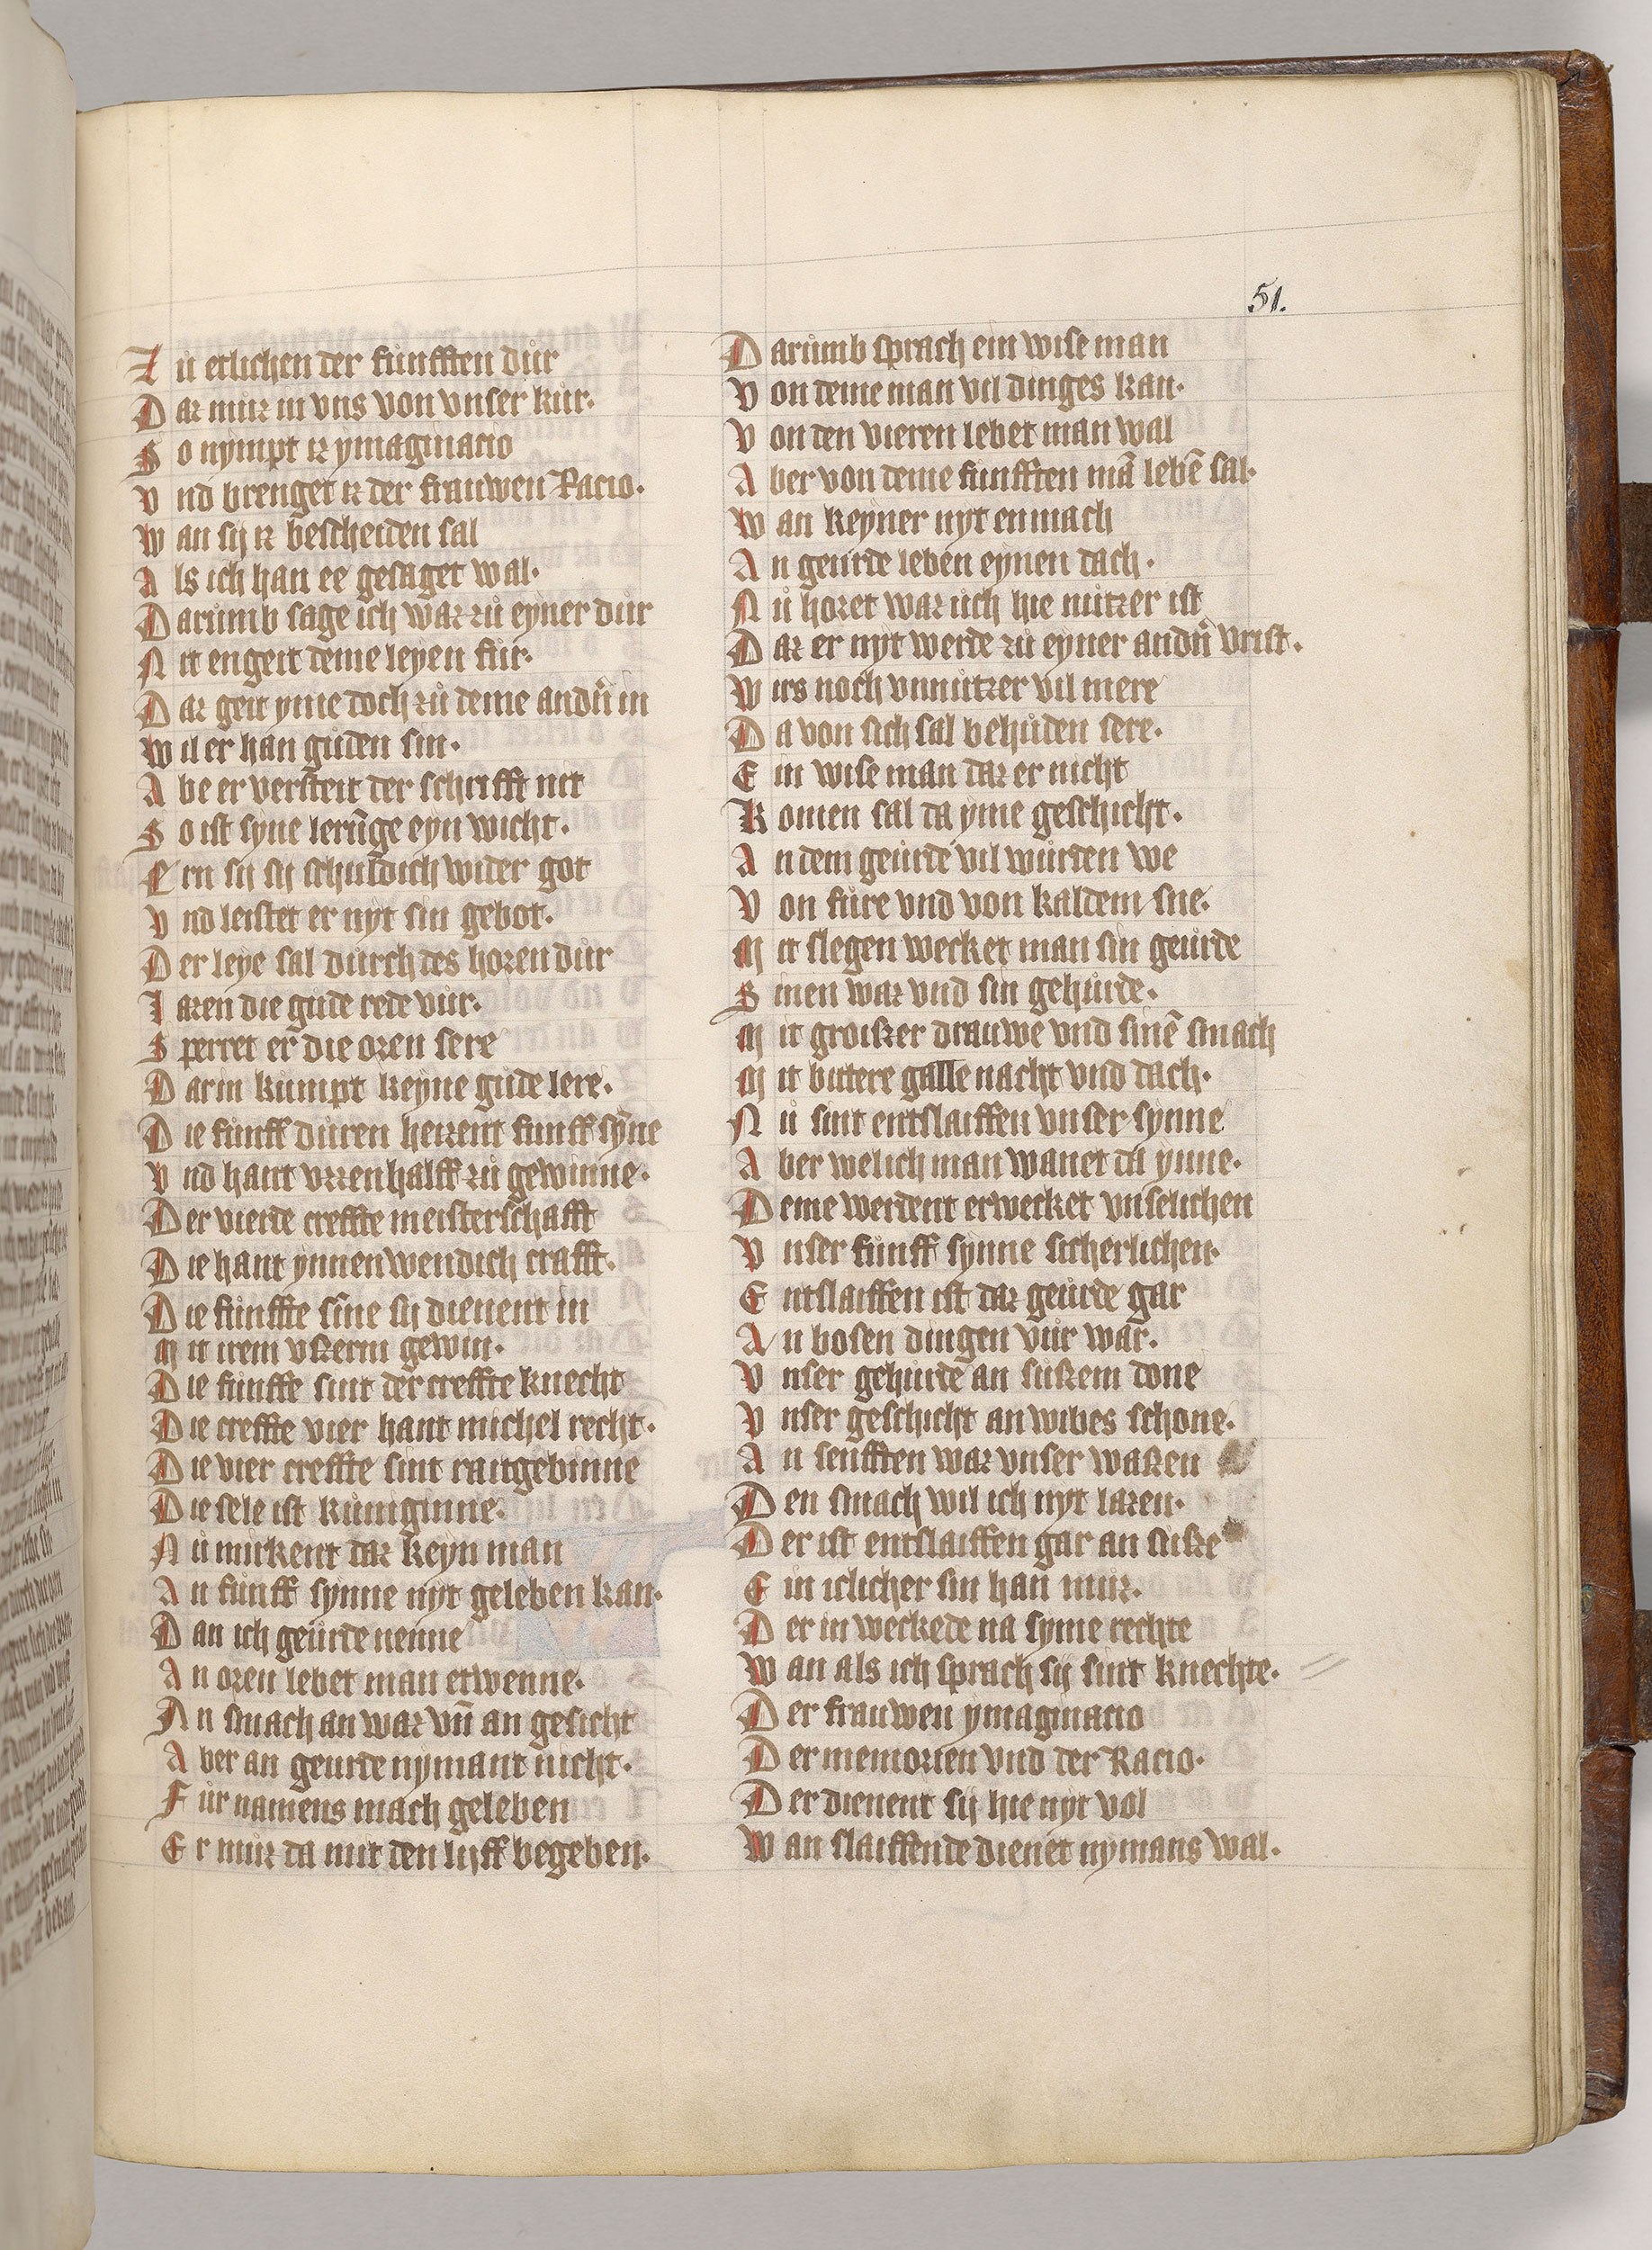 51.
Zu etlichen der funfften dur
Daz muz in vns von vnser kur.
So nympt iz ymaginatio
Vnd brenget iz der frauwen Racio.
Wan sy iz bescheiden sal
Als ich han ee gesaget wal.
Darumb sage ich waz zu eyner dur
Nit engeit deme leyen fur.
Daz geit yme doch zu deme andn̄ in
Wil er han guden sin.
Abe er versteit der schrifft nit
So ist syne lerūge eyn wicht.
Ern sy sy schuldich wider got
Vnd leistet er nyt sin gebot.
Der leye sal durch des horen dur
Iazen die gude rede vur.
Sperret er die oren sere
Darin kumpt keyne gude lere.
Die funff duren heizent funff sȳne
Vnd hant vzzenhalff zu gewinne.
Der vierde creffte meisterschafft
Die hant ynnen wendich crafft.
Die funffte sīne sy dienent in
Mit irem vßerm gewin.
Die funffe sint der creffte knecht
Die creffte vier hant michel recht.
Die vier creffte sint raitgebinne
Die sele ist kuniginne.
Nu mirkent daz keyn man
An funff synne nyt geleben kan.
Dan ich geurde nenne
An oren lebet man etwenne.
An smach an waz vn̄ an gesicht
Aber an geurde nymant nicht.
Fur namens mach geleben
Er muz da mit den lyff begeben.
Darumb sprach ein wise man
Von deme man vil dinges kan.
Von den vieren lebet man wal
Aber von deme funfften mā lebē sal.
Wan keyner nyt enmach
An geurde leben eynen dach.
Nu horet waz uch hie nutzer ist
Daz er nyt werde zu eyner andn̄ vrist.
Wirs noch vnnutzer vil mere
Da von sich sal behuden sere.
Ein wise man daz er nicht
Komen sal da yme geschicht.
An dem geurde vil wurden we
Von fure vnd von kaldem sne.
Mit slegen wecket man sin geurde
Sinen waz vnd sin gehurde.
Mit groißer drauwe vnd sinē smach
Mit bittere galle nacht vnd dach.
Nu sint entslaiffen vnser synne
Aber welich man wanet da ynne.
Deme werdent erwecket vnselichen
Vnser funff synne sicherlichen.
Entslaiffen ist daz geurde gar
An bosen dingen vur war.
Vnser gehurde an sußem done
Vnser geschicht an wibes schone.
An senfften waz vnser waßen
Den smach wil ich nyt lazen.
Der ist entslaiffen gar an suße
Ein iclicher sin han muz.
Der in weckede na syme rechte
Wan als ich sprach sy sint knechte.
Der frauwen ymaginatio
Der memorien vnd der Racio.
Der dienent sy hie nyt vol
Wan slaiffende dienet nymans wal.